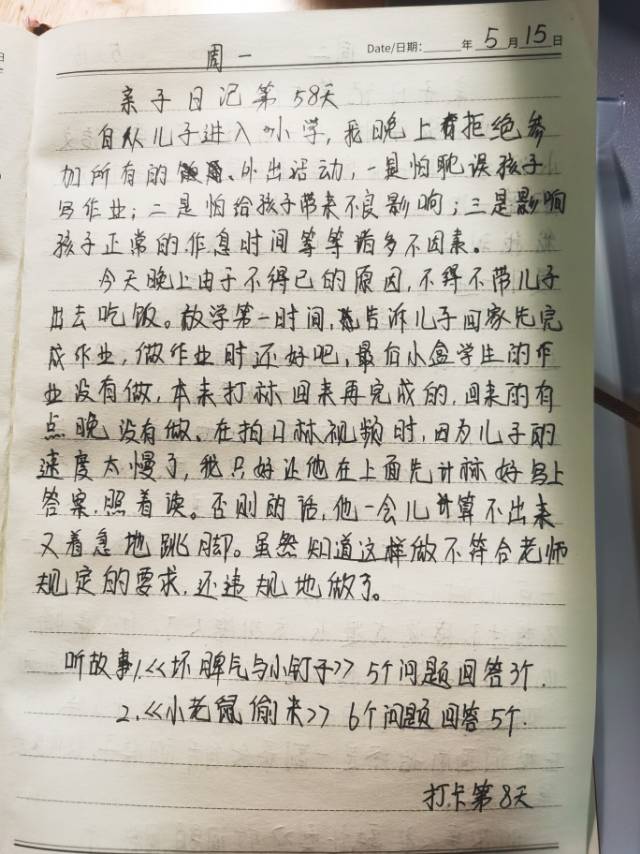 周一
Date/日期: 年 5 月 15 日
亲子日记第58天
自从儿子进入小学,我晚上拒绝参
加所有的 、外出活动,一是怕耽误孩子
写作业;二是怕给孩子带来不良影响;三是影响
孩子正常的作息时间等等诸多不因素。
今天晚上由于不得已的原因,不得不带儿子
出去吃饭。放学第一时间,我告诉儿子回家先完
成作业,做作业时还好吧,最后小盒学生的作
业没有做,本来打标回来再完成的,回来的有
点晚没有做、在拍口标视频时,因为儿子的
速度太慢了,我只好让他在上面先计标好写上
答案,照着读。否则的话,他一会儿计算不出来
又着急地跳脚。虽然知道这样做不符合老师
规定的要求,还违规地做了。
听故事1,《坏脾气与小钉子》5个问题回答3个.
2.《小老鼠偷米》6个问题回答5个.
打卡第8天